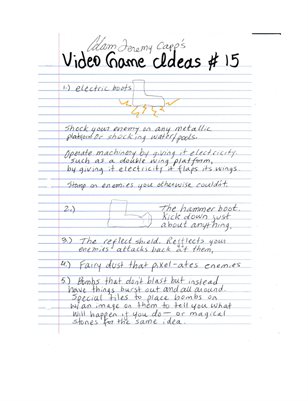 Adam Jeremy Capp's
Video Game Ideas # 15
1.) electric boots
Shock your enemy on any metallic
platform or shocking water/pools.
Operate machinery by giving it electricity.
such as a double wing platform,
by giving it electricity it flaps its wings
Stomp on enemies you otherwise couldn't.
2.) The hammer boot.
Kick down just
about anything,
3.) The reflect shield. Reiflects your
enemies' attacks back at them,
4.) Fairy dust that pixel-ates enemies
5.) Bombs that dont blast but instead
have things burst out and all around.
Special tiles to place bombs on
w/ an image on them to tell you what
will happen if you do - or magical
stones for the same idea.